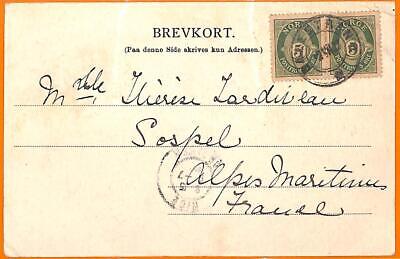 BREVKORT.
(Paa denne Side skrives kun Adressen.)
NORGE NORGE
5 5
Mlle Thérèse Lardiveau
Sospel
Alpes Maritimes
France